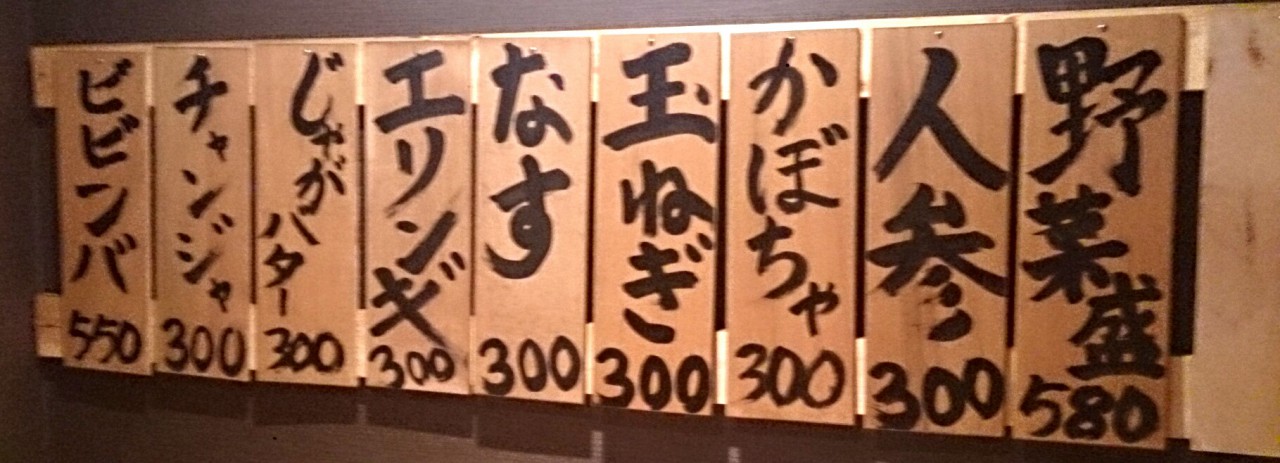 野菜盛
580
人参
300
かぼちゃ
300
玉ねぎ
300
なす
300
エリンギ
300
じゃがバター
300
チャンジャ
300
ビビンバ
550